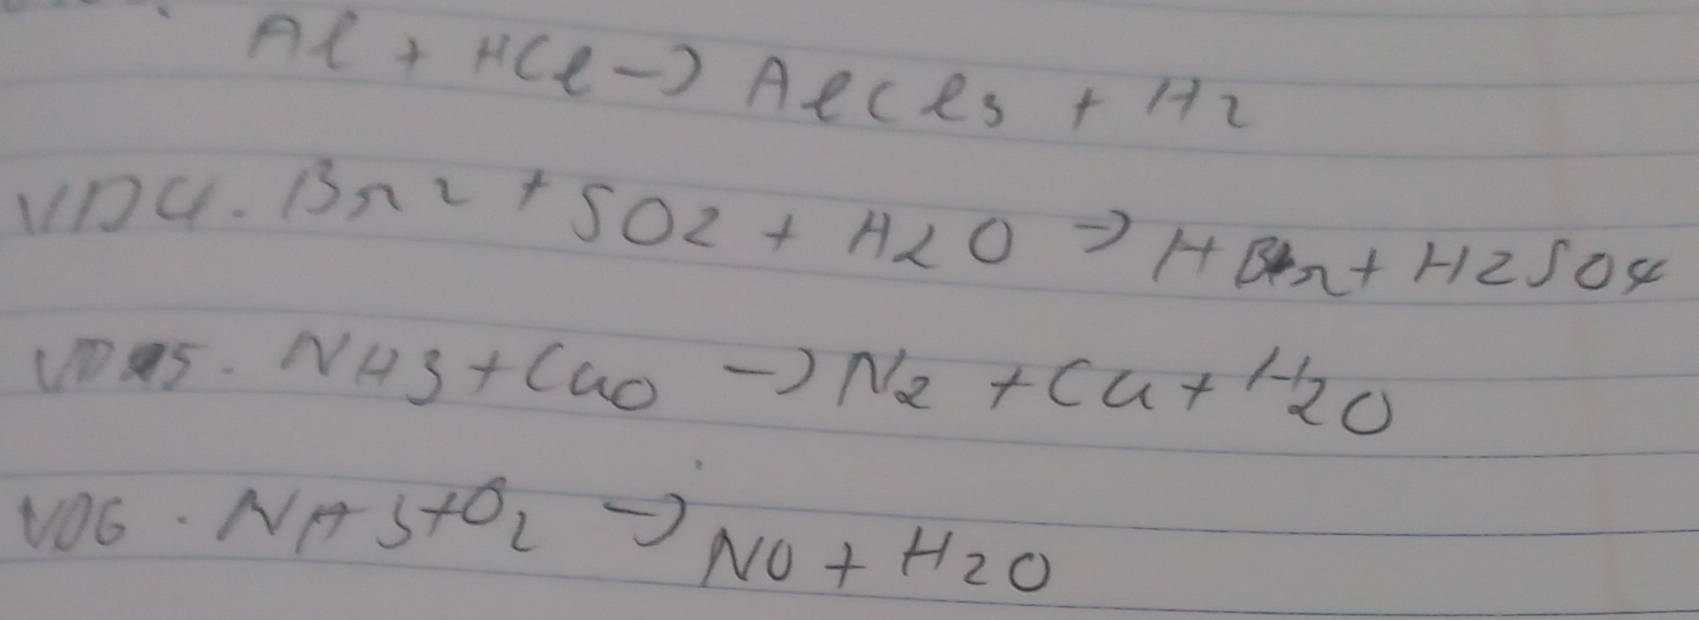 Al + HCl → AlCl3 + H2
VD4. Br2 + SO2 + H2O → HBr + H2SO4
VD5. NH3 + CuO → N2 + Cu + H2O
VD6. NH3 + O2 → NO + H2O